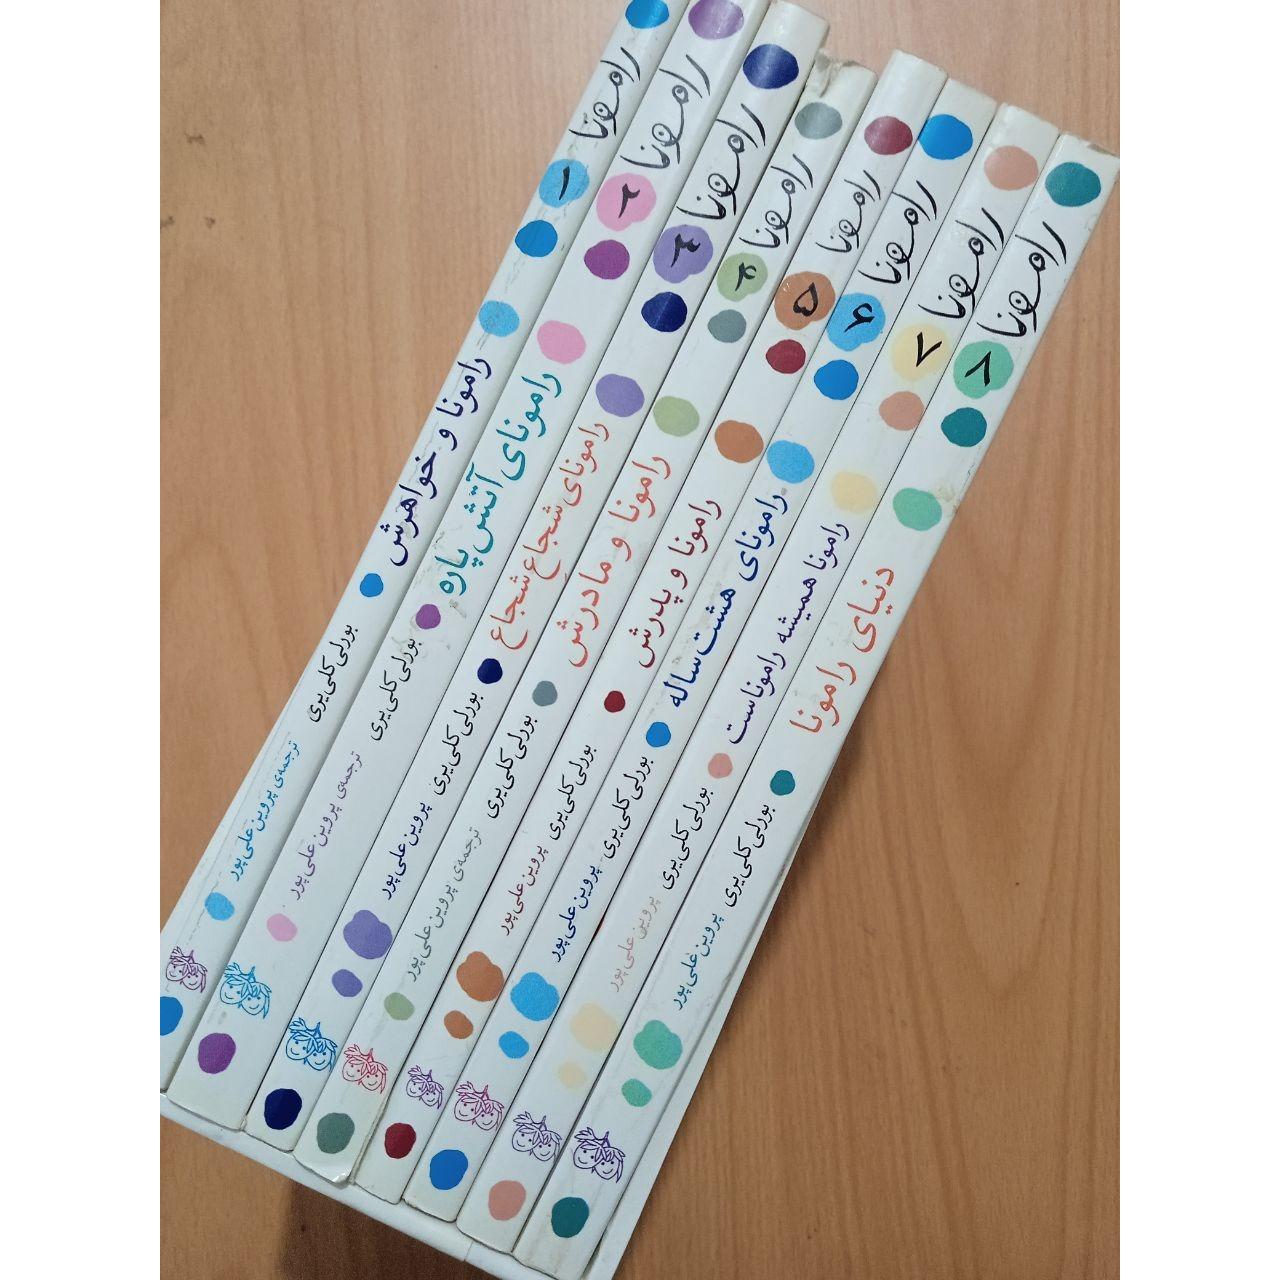 رامونا
۱
رامونا و خواهرش
بورلی کلی‌یری
ترجمه‌ی پروین علی‌پور
رامونا
۲
رامونای آتش‌پاره
بورلی کلی‌یری
ترجمه‌ی پروین علی‌پور
رامونا
۳
رامونای شجاعِ شجاع
بورلی کلی‌یری
پروین علی‌پور
رامونا
۴
رامونا و مادرش
بورلی کلی‌یری
ترجمه‌ی پروین علی‌پور
رامونا
۵
رامونا و پدرش
بورلی کلی‌یری
پروین علی‌پور
رامونا
۶
رامونای هشت‌ساله
بورلی کلی‌یری
پروین علی‌پور
رامونا
۷
رامونا همیشه راموناست
بورلی کلی‌یری
پروین علی‌پور
رامونا
۸
دنیای رامونا
بورلی کلی‌یری
پروین علی‌پور